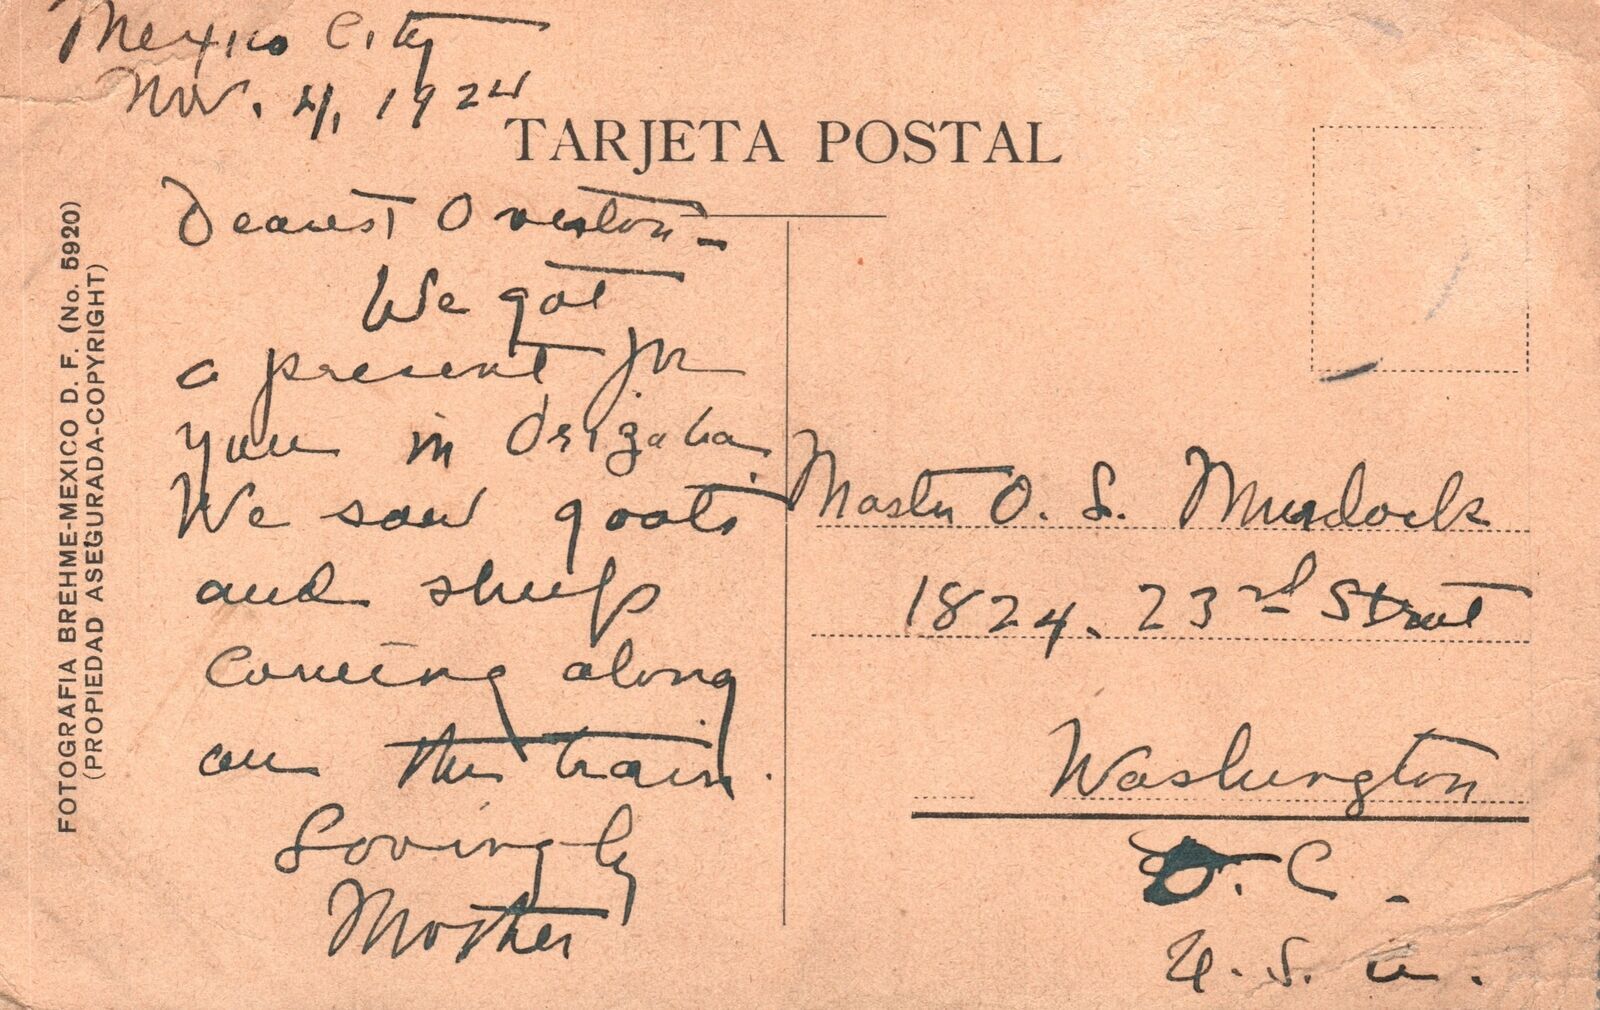 Mexico City
Nov. 4, 1924
TARJETA POSTAL
Dearest Overton -
We got
a present for
you in Orizaba.
We saw goats
and sheep
coming along
on the train.
Lovingly
Mother
Master O. S. Murdock
1824. 23rd Street
Washington
D. C.
U. S. A.
FOTOGRAFIA BREHME-MEXICO D. F. (No. 5920)
(PROPIEDAD ASEGURADA-COPYRIGHT)